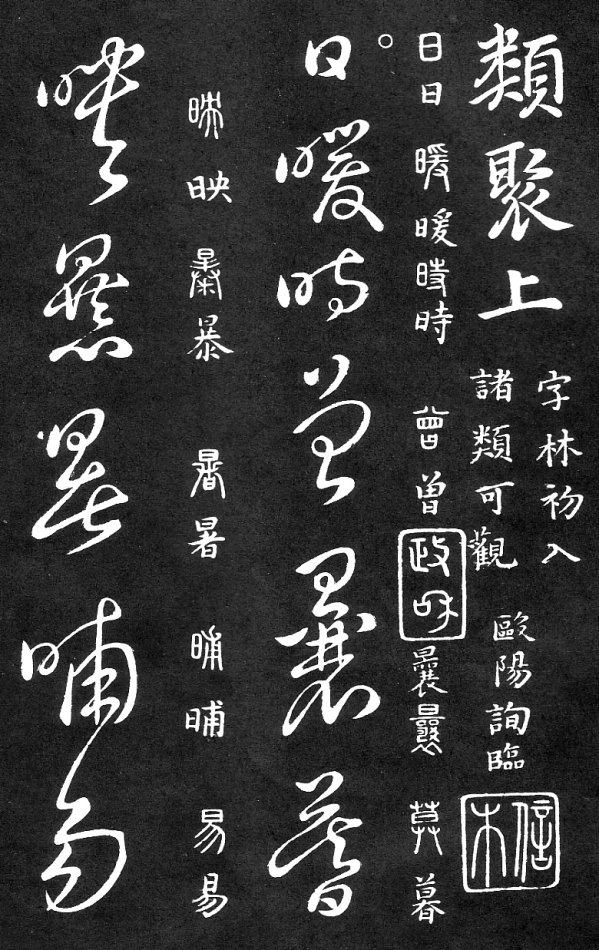 類聚上
字林初入
諸類可觀
歐陽詢臨
信本
日日 暖暖 時時 曾曾 曩曩 莫暮
政和
日暖時曾曩暮
映映 暴暴 暑暑 晡晡 易易
映暴暑晡易